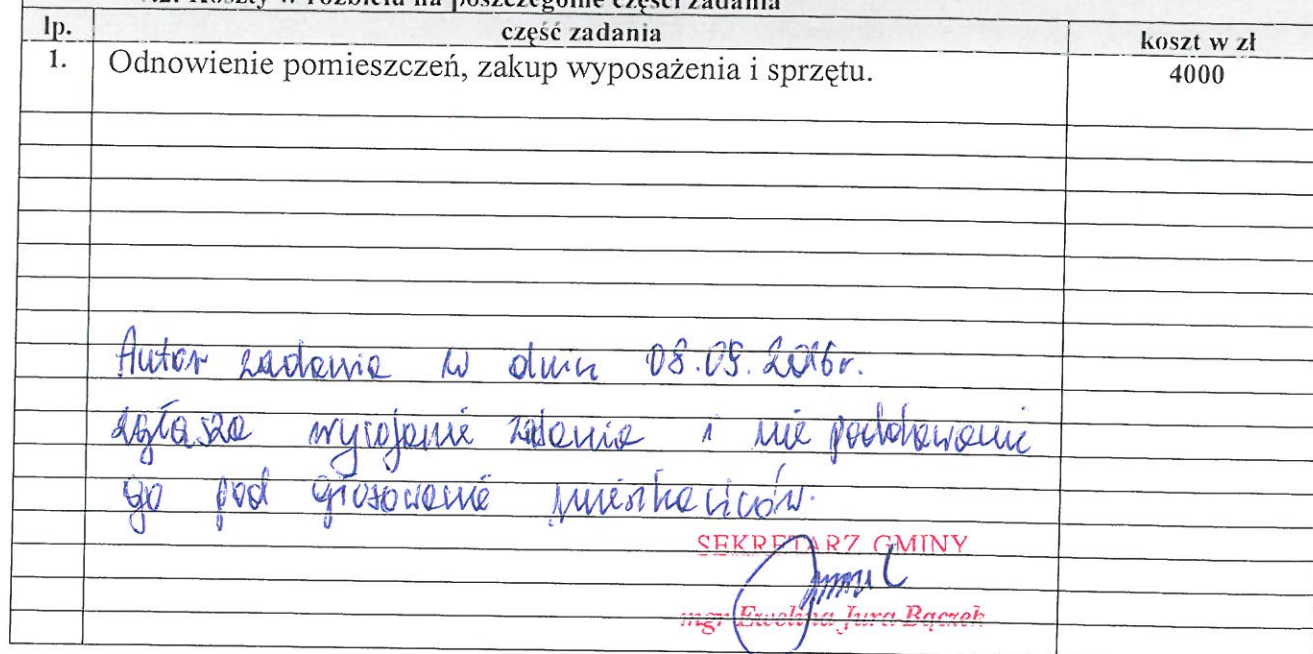 4.2. Koszty w rozbiciu na poszczególne części zadania
lp. część zadania koszt w zł
1. Odnowienie pomieszczeń, zakup wyposażenia i sprzętu. 4000
Autor zadania w dniu 08.09.2016r.
zgłasza wycofanie zadania i nie poddawanie
go pod głosowanie mieszkańców.
SEKRETARZ GMINY
mgr Ewelina Jura Bączek